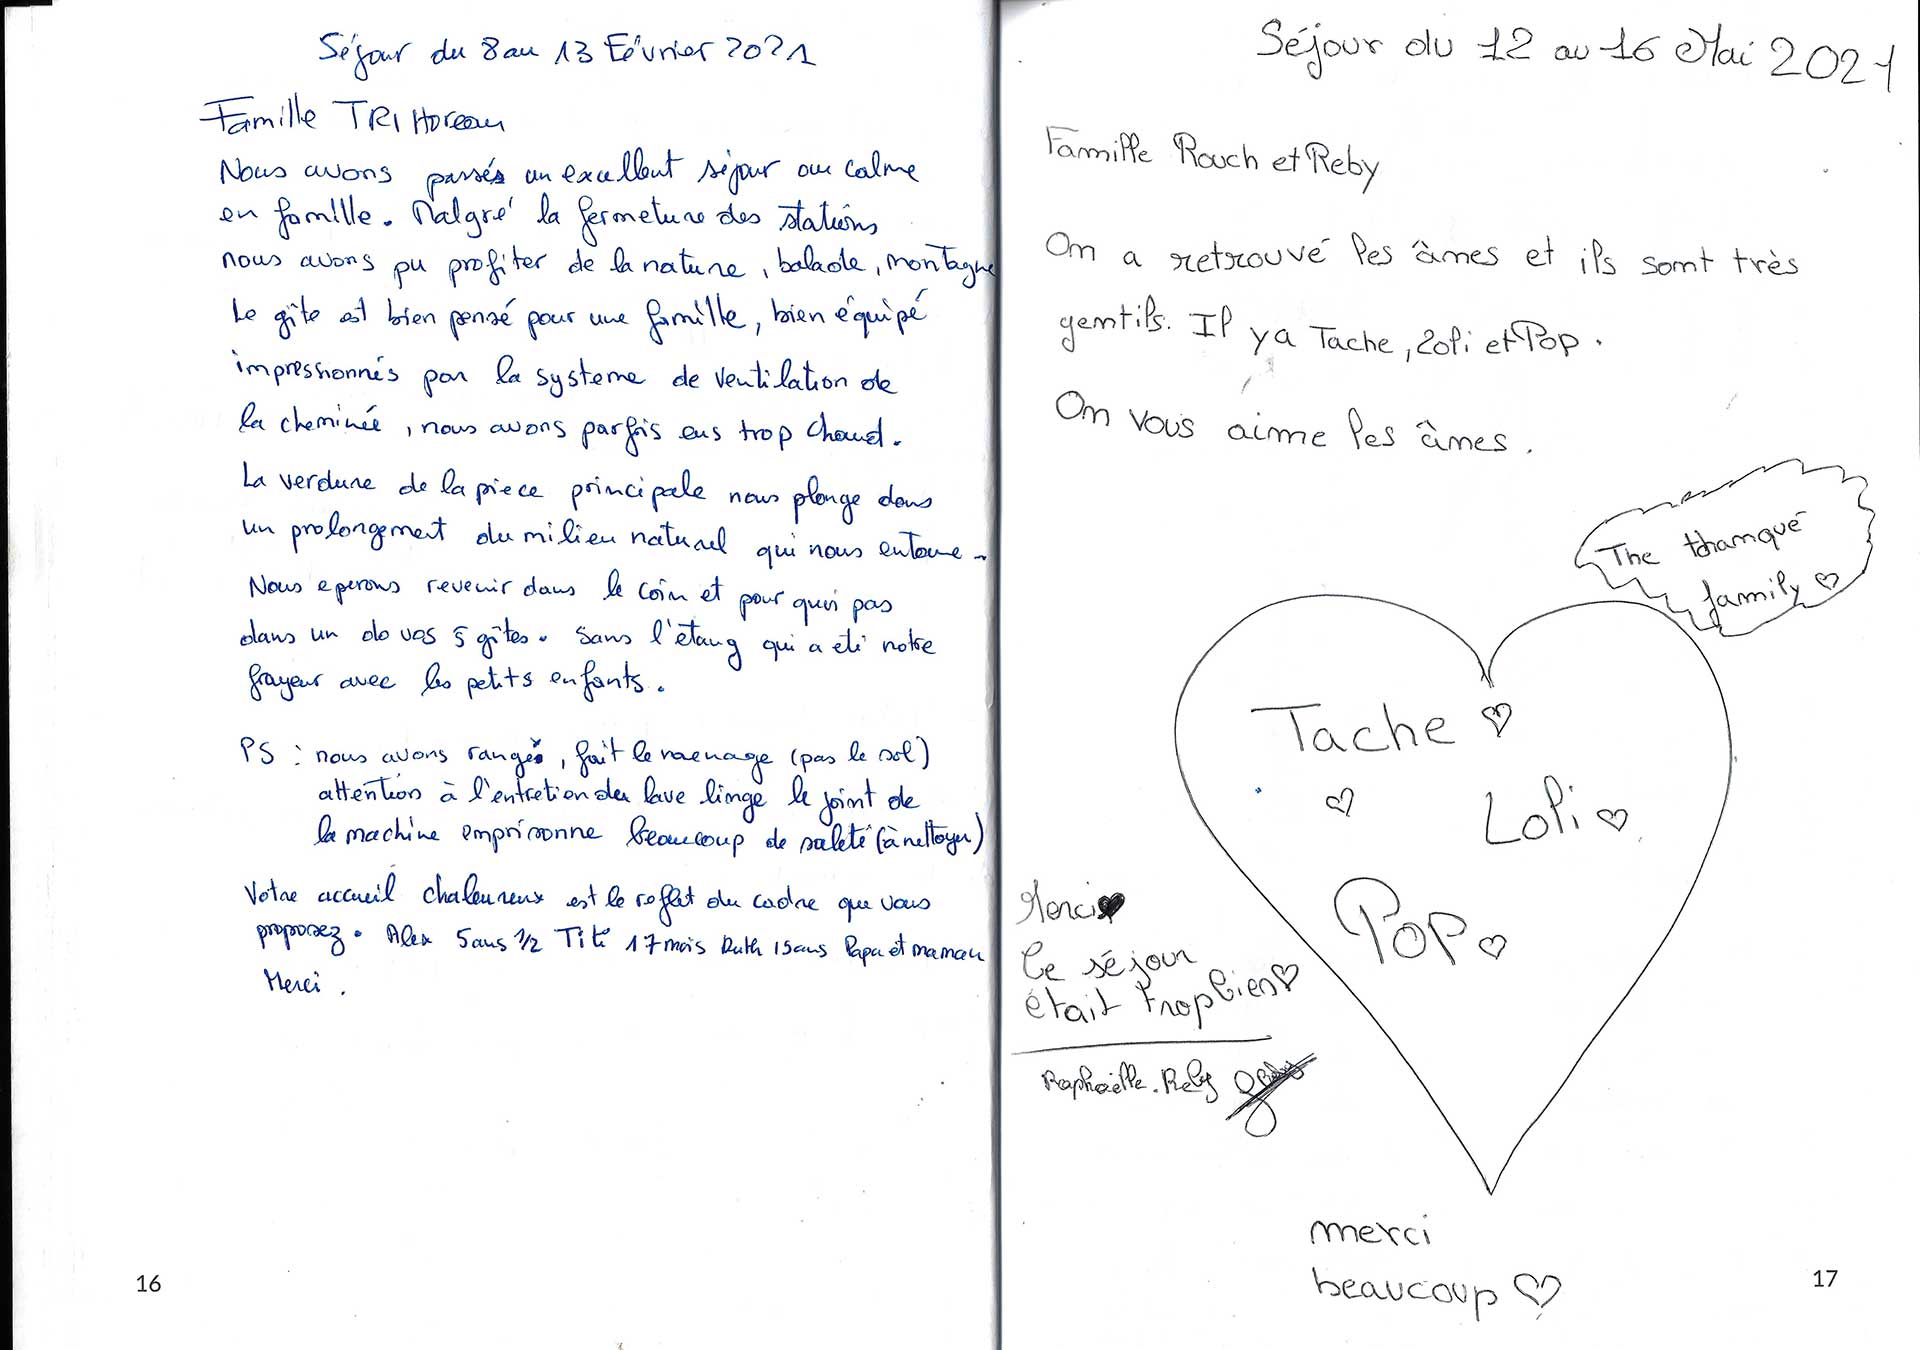 Séjour du 8 au 13 Février 2021
Famille TRIHoreau
Nous avons passés un excellent séjour au calme
en famille. Malgré la fermeture des stations
nous avons pu profiter de la nature, balade, montagne
Le gîte est bien pensé pour une famille, bien équipé
impressionnés par la systeme de ventilation de
la cheminée, nous avons parfois eus trop chaud.
La verdure de la piece principale nous plonge dans
un prolongement du milieu naturel qui nous entoure.
Nous eperons revenir dans le coin et pour quoi pas
dans un de vos 5 gîtes. Sans l'étang qui a été notre
frayeur avec les petits enfants.
PS : nous avons rangé, fait le menage (pas le sol)
attention à l'entretien du lave linge le joint de
la machine emprisonne beaucoup de saleté (à nettoyer)
Votre accueil chaleureux est le reflet du cadre que vous
proposez. Alex 5 ans 1/2 Titi 17 mois Ruth 15 ans Papa et maman
Merci.
16
Séjour du 12 au 16 Mai 2021
Famille Rouch et Reby
On a retrouvé les âmes et ils sont très
gentils. Il y a Tache, Loli et Pop.
On vous aime les âmes.
The tchamqué
family ♡
Tache ♡
♡
Loli ♡
Pop ♡
Merci ♥
Le séjour
était trop bien ♡
Raphaëlle. Reby
merci
beaucoup ♡
17